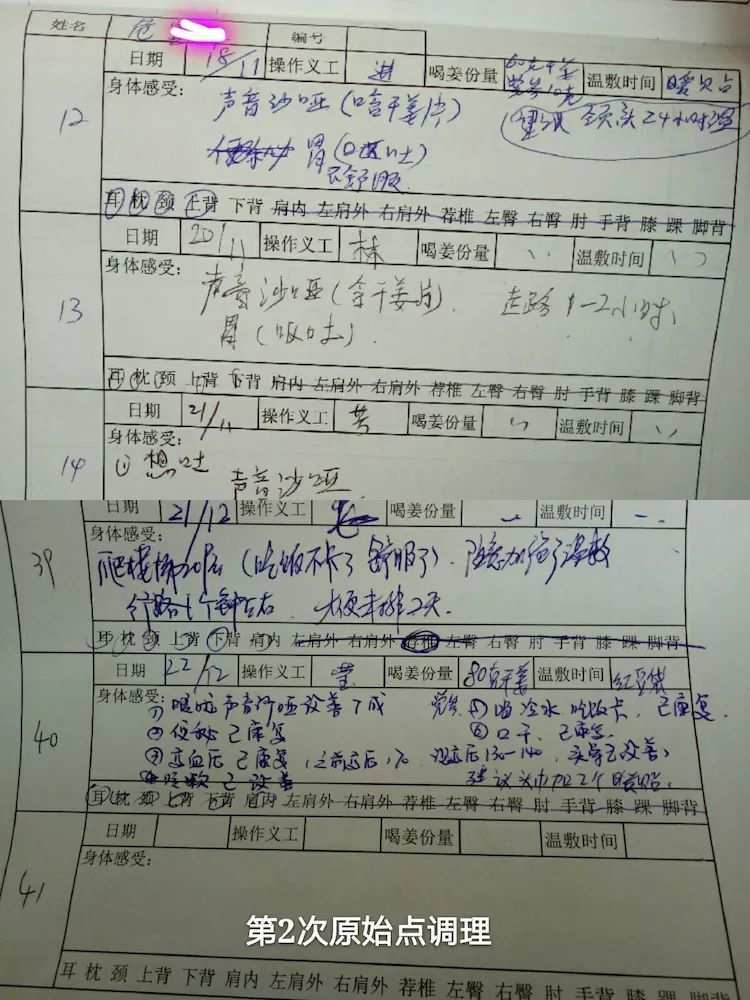 姓名 编号
12
日期 18/11 操作义工 进 喝姜份量 60克干姜 黄芪10克 温敷时间 暖贴
身体感受:
声音沙哑(含干姜片)
颈部24小时温
胃(呕吐)
不舒服
耳 枕 颈 上背 下背 肩内 左肩外 右肩外 荐椎 左臀 右臀 肘 手背 膝 踝 脚背
13
日期 20/11 操作义工 林 喝姜份量 ヽヽ 温敷时间 ヽヽ
身体感受:
声音沙哑(含干姜片). 走路1-2小时
胃(呕吐).
耳 枕 颈 上背 下背 肩内 左肩外 右肩外 荐椎 左臀 右臀 肘 手背 膝 踝 脚背
14
日期 21/11 操作义工 喝姜份量 ヽヽ 温敷时间 ヽヽ
身体感受:
① 想吐
声音沙哑
39
日期 21/12 操作义工 喝姜份量 温敷时间
身体感受:
爬楼梯20层(吃饭不卡了 舒服了). 随意加强了温敷
行路1个钟左右. 大便未排2天.
耳 枕 颈 上背 下背 肩内 左肩外 右肩外 荐椎 左臀 右臀 肘 手背 膝 踝 脚背
40
日期 22/12 操作义工 莹 喝姜份量 80克干姜 温敷时间 红豆袋
身体感受:
① 声音沙哑改善了 ⑤ 喝冷水吃饭卡, 已康复.
② 便秘已康复 ⑥ 口干, 已康复
③ 已康复 130-140, 已改善)
④ 咳嗽已改善 建议 加2个暖贴.
耳 枕 颈 上背 下背 肩内 左肩外 右肩外 荐椎 左臀 右臀 肘 手背 膝 踝 脚背
41
日期 操作义工 喝姜份量 温敷时间
身体感受:
第2次原始点调理
耳 枕 颈 上背 下背 肩内 左肩外 右肩外 荐椎 左臀 右臀 肘 手背 膝 踝 脚背